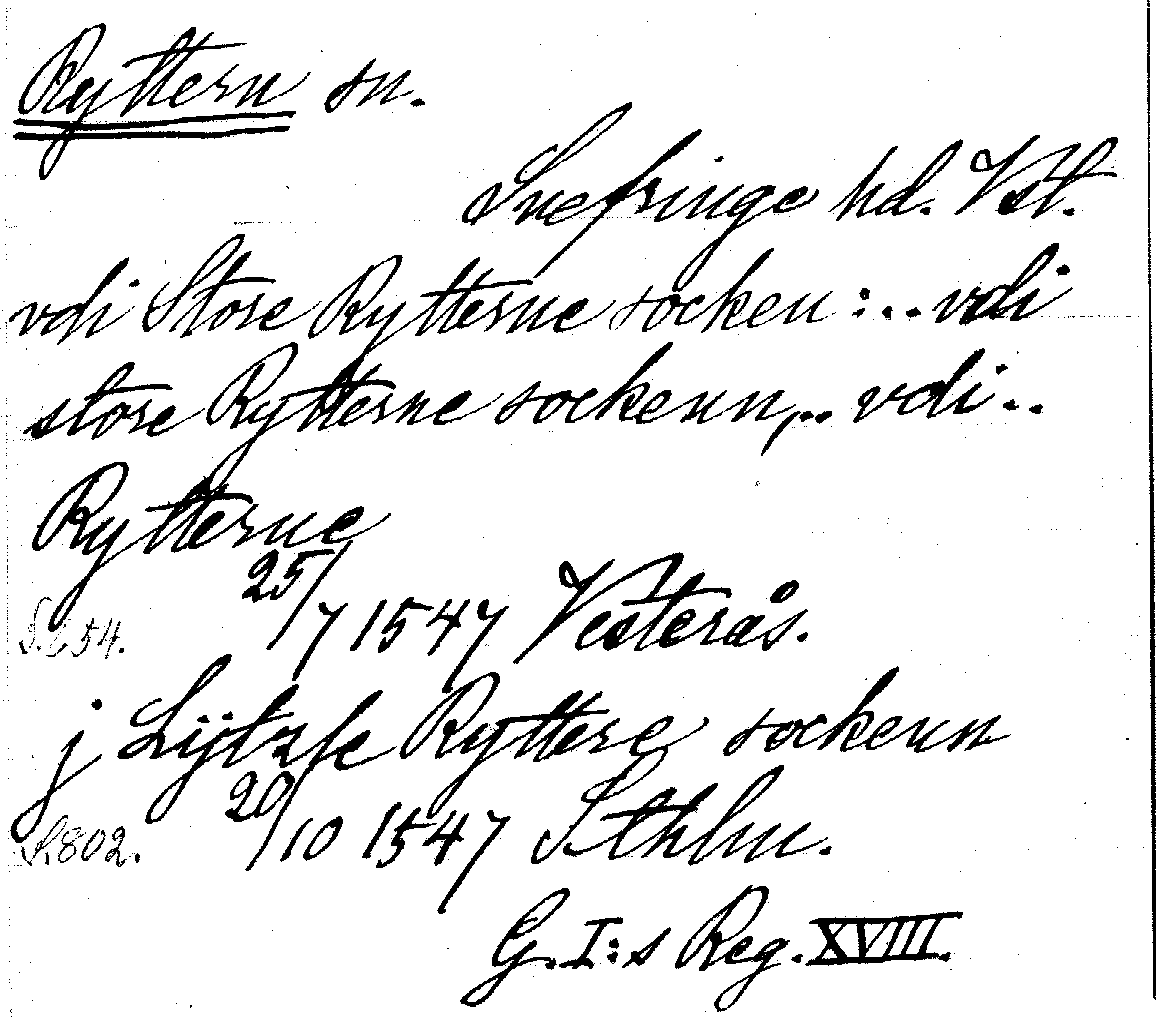 Ryttern sn.
Snefringe hd. Vstl.
vdi Store Rytterne socken:.. vdi
store Rytterne sockenn,.. vdi..
Rytterne
25/7 1547 Vesterås.
j Lijtzle Ryttere sockenn
20/10 1547 Sthlm.
S.802.
G.I:s Reg. XVIII.